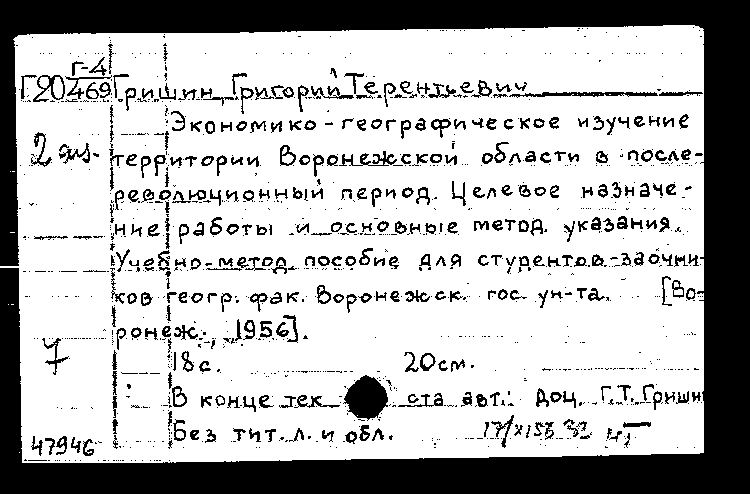 Г-4
Г20/469 Гришин, Григорий Терентьевич
Экономико-географическое изучение
2 экз. территории Воронежской области в после-
революционный период. Целевое назначе-
ние работы и основные метод. указания.
Учебно-метод. пособие для студентов-заочни-
ков геогр. фак. Воронежск. гос. ун-та. [Во-
ронеж, 1956].
7 18 с. 20 см.
В конце текста авт.: Доц. Г.Т. Гришин
47946 Без тит. л. и обл.